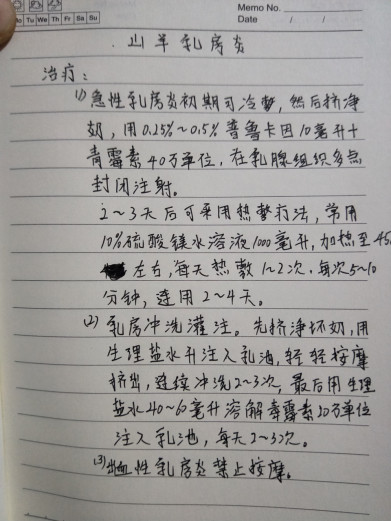 Memo No.
Mo Tu We Th Fr Sa Su
Date / /
山羊乳房炎
治疗：
(1)急性乳房炎初期可冷敷，然后挤净
奶，用0.25%～0.5%普鲁卡因10毫升+
青霉素40万单位，在乳腺组织多点
封闭注射。
2～3天后可采用热敷疗法，常用
10%硫酸镁水溶液1000毫升，加热至45
左右，每天热敷1～2次，每次5～10
分钟，连用2～4天。
(2)乳房冲洗灌注。先挤净坏奶，用
生理盐水升注入乳池，轻轻按摩
挤出，连续冲洗2～3次，最后用生理
盐水40～60毫升溶解青霉素20万单位
注入乳池，每天2～3次。
(3)出血性乳房炎禁止按摩。